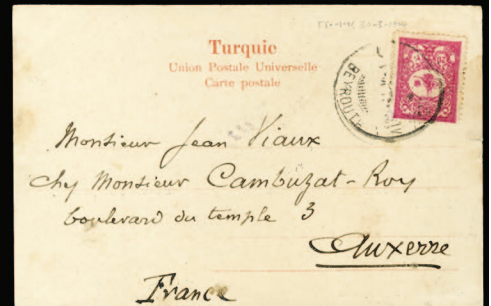 Turquie
Union Postale Universelle
Carte postale
BEYROUTH
Monsieur Jean Viaux
chez Monsieur Cambuzat-Roy
boulevard du temple 3
Auxerre
France